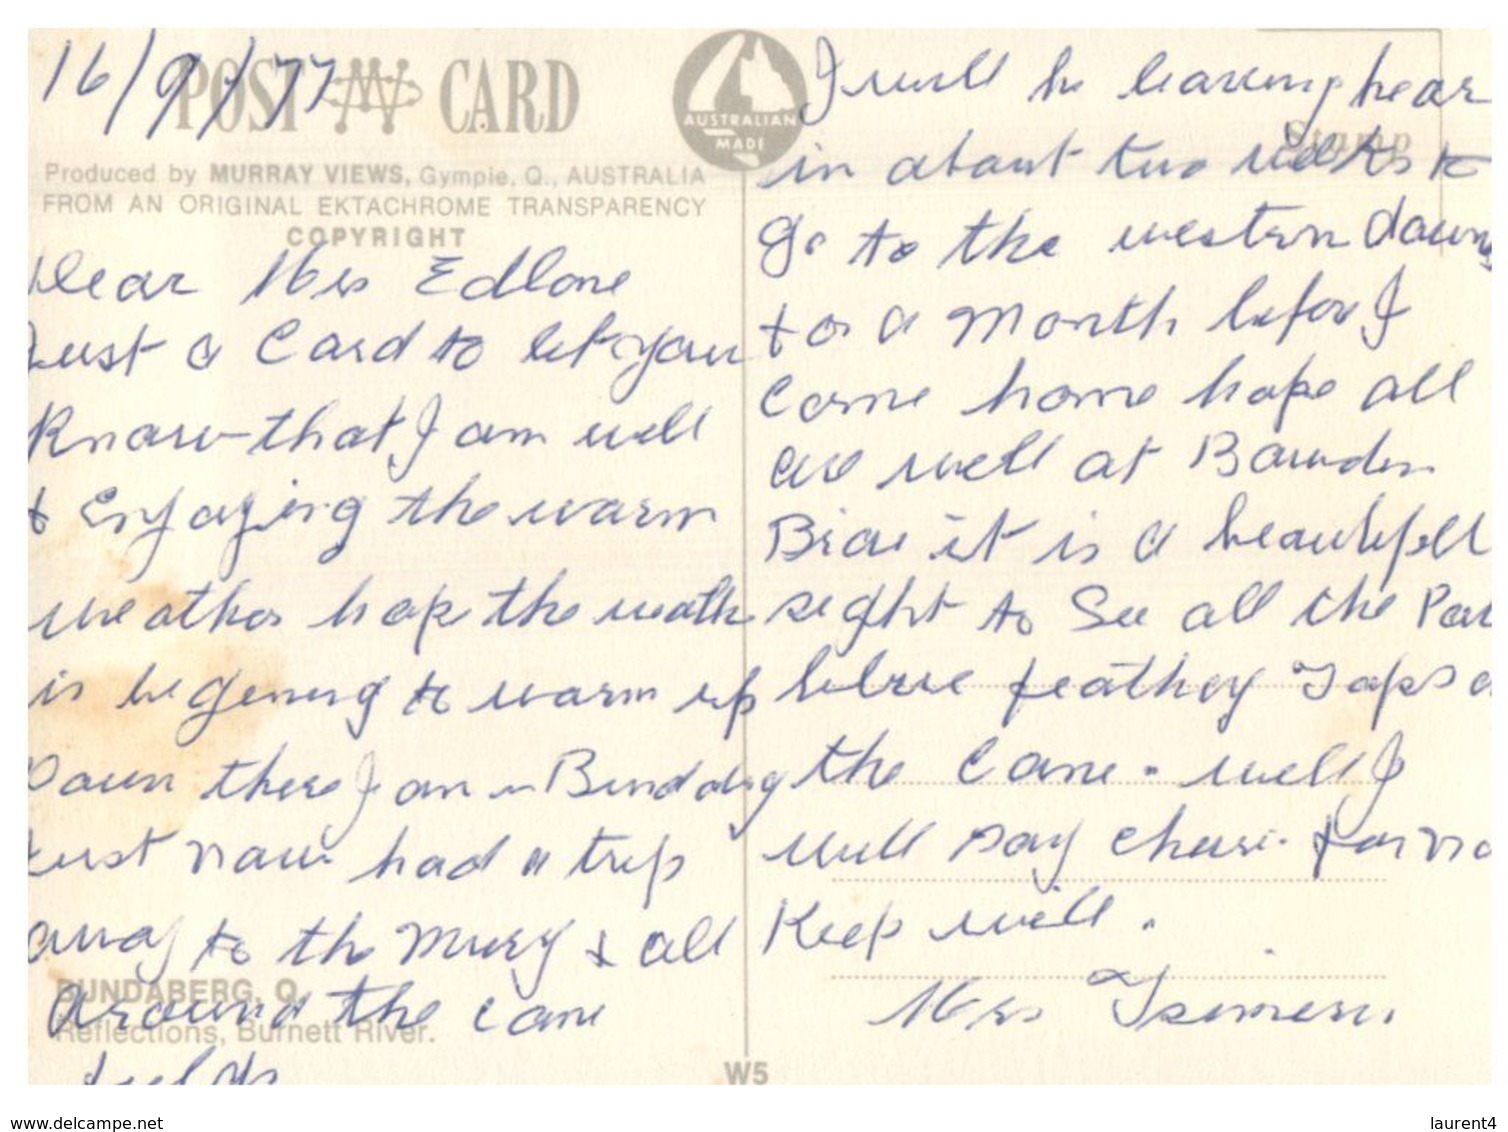 16/9/77
POST CARD
AUSTRALIAN
MADE
Produced by MURRAY VIEWS, Gympie, Q., AUSTRALIA
FROM AN ORIGINAL EKTACHROME TRANSPARENCY
COPYRIGHT
Dear Mrs
Just a Card to let you
Know that I am well
& Enjoying the warm
weather hope the weath
is begening to warm up
Down there I am in
Just now had a trip
away to the & all
around the cane
BUNDABERG, Q.
Reflections, Burnett River.
Stamp
I will be leaving hear
in about two weeks to
go to the western downs
for a Month before I
Come home hope all
are well at
it is a beautifull
sight to See all the
feathey Taps
the Cane. well I
will say
Keep well.
Mrs
W5
www.delcampe.net
laurent4